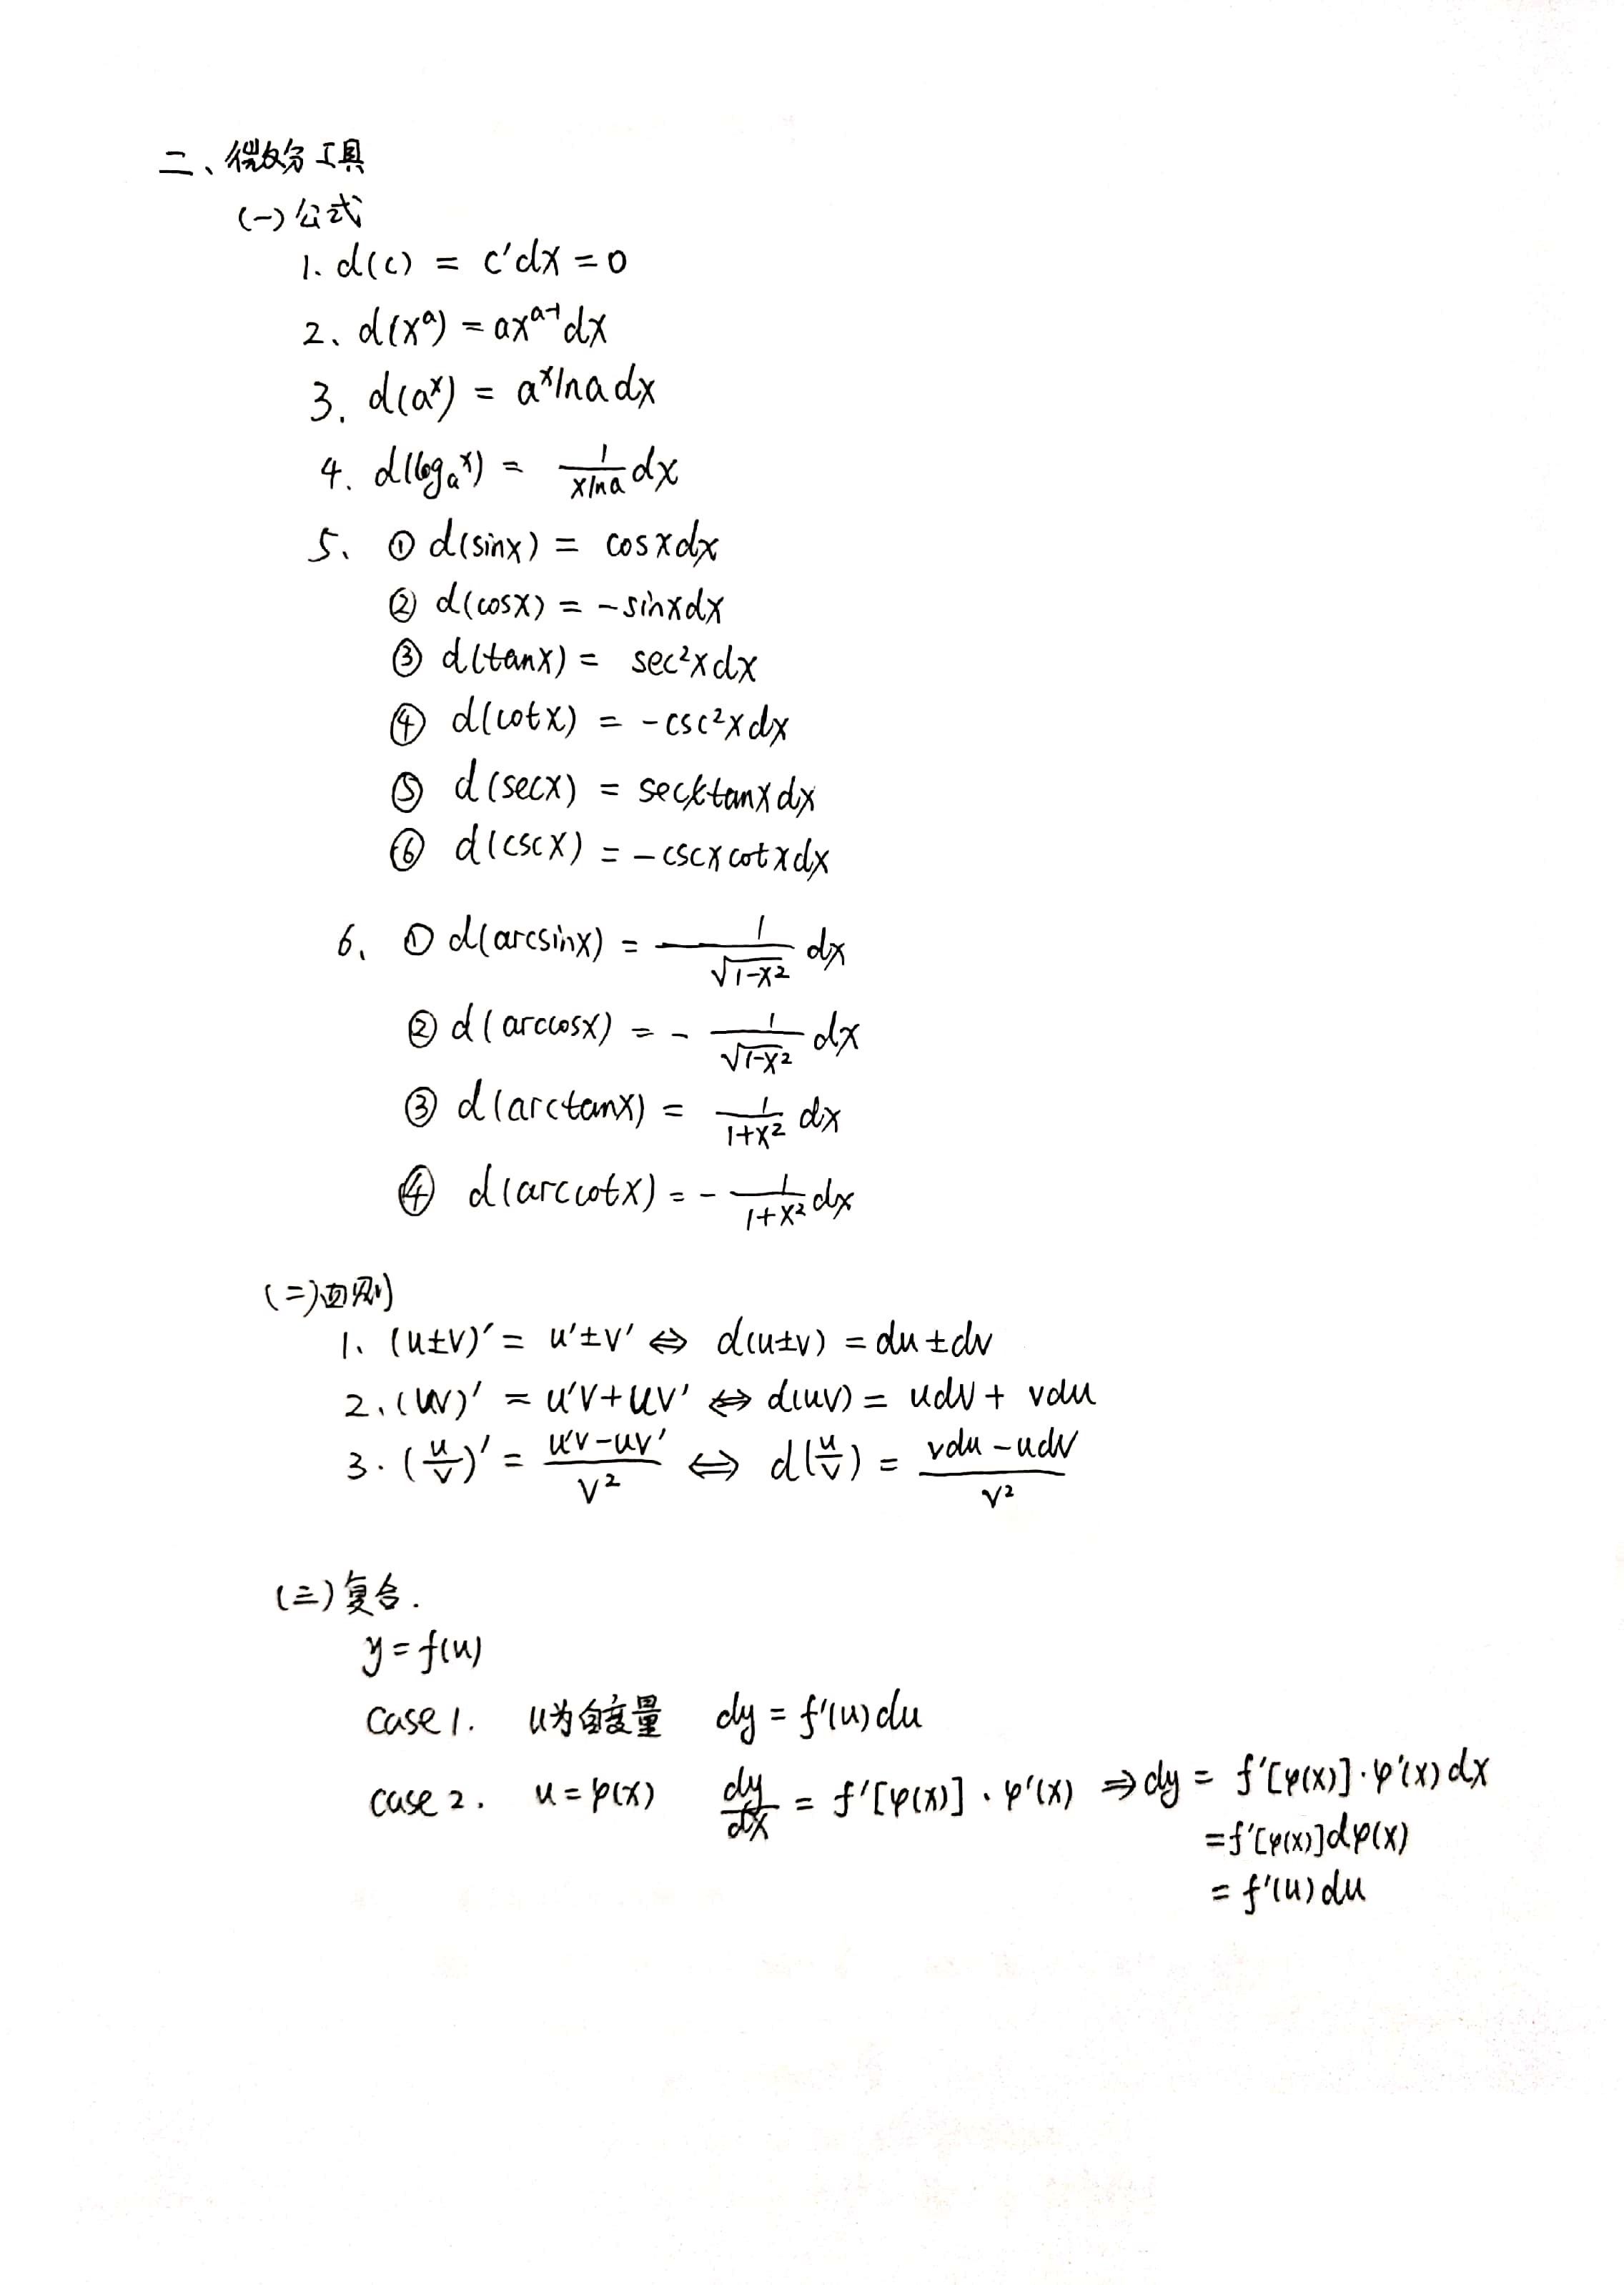 二、微分工具
(一)公式
1、d(c) = c'dx = 0
2、d(xᵃ) = axᵃ⁻¹dx
3. d(aˣ) = aˣlna dx
4. d(logₐˣ) = 1/(xlna) dx
5、① d(sinx) = cosxdx
② d(cosx) = -sinxdx
③ d(tanx) = sec²xdx
④ d(cotx) = -csc²xdx
⑤ d(secx) = secxtanxdx
⑥ d(cscx) = -cscxcotxdx
6、① d(arcsinx) = 1/√(1-x²) dx
② d(arccosx) = - 1/√(1-x²) dx
③ d(arctanx) = 1/(1+x²) dx
④ d(arccotx) = - 1/(1+x²) dx
(二)四则
1、(u±v)' = u'±v' ⇔ d(u±v) = du±dv
2、(uv)' = u'v+uv' ⇔ d(uv) = udv + vdu
3. (u/v)' = (u'v-uv')/v² ⇔ d(u/v) = (vdu-udv)/v²
(三)复合.
y = f(u)
case 1. u为自变量 dy = f'(u)du
case 2. u = φ(x) dy/dx = f'[φ(x)]·φ'(x) ⇒ dy = f'[φ(x)]·φ'(x)dx
= f'[φ(x)]dφ(x)
= f'(u)du